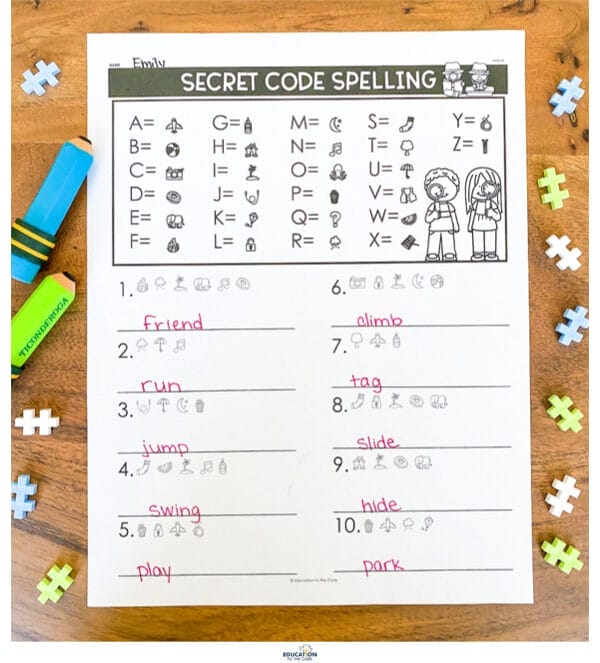 NAME Emily
SECRET CODE SPELLING
A= G= M= S= Y=
B= H= N= T= Z=
C= I= O= U=
D= J= P= V=
E= K= Q= W=
F= L= R= X=
1. 6.
friend climb
2. 7.
run tag
3. 8.
jump slide
4. 9.
swing hide
5. 10.
play park
© Education to the Core
TICONDEROGA
EDUCATION
TO THE CORE